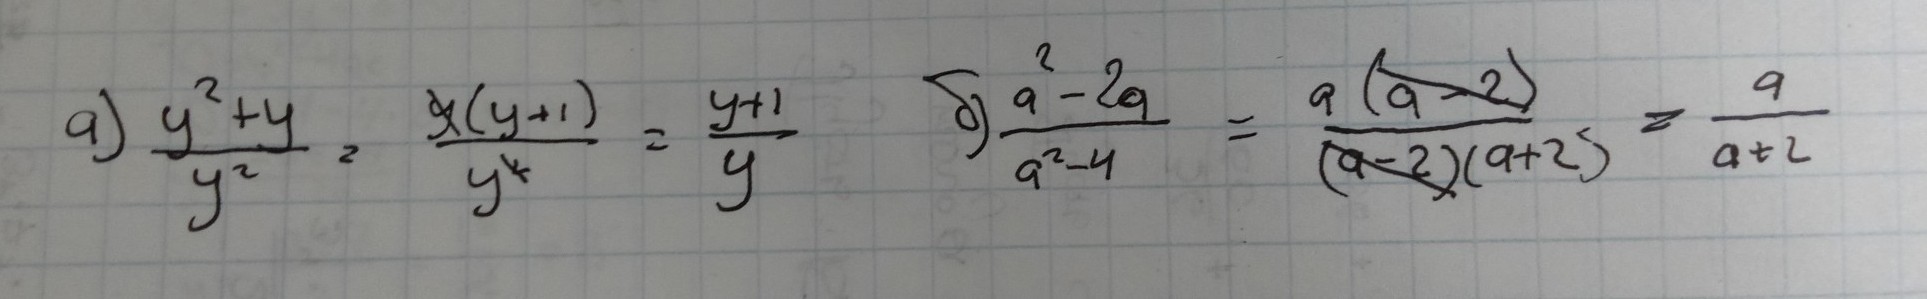 а) (y²+y)/y² = y(y+1)/y² = (y+1)/y б) (a²-2a)/(a²-4) = a(a-2)/((a-2)(a+2)) = a/(a+2)